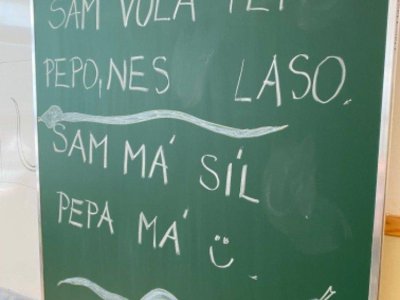 SAM VOLÁ
PEPO, NES LASO.
SAM MÁ SÍL
PEPA MÁ